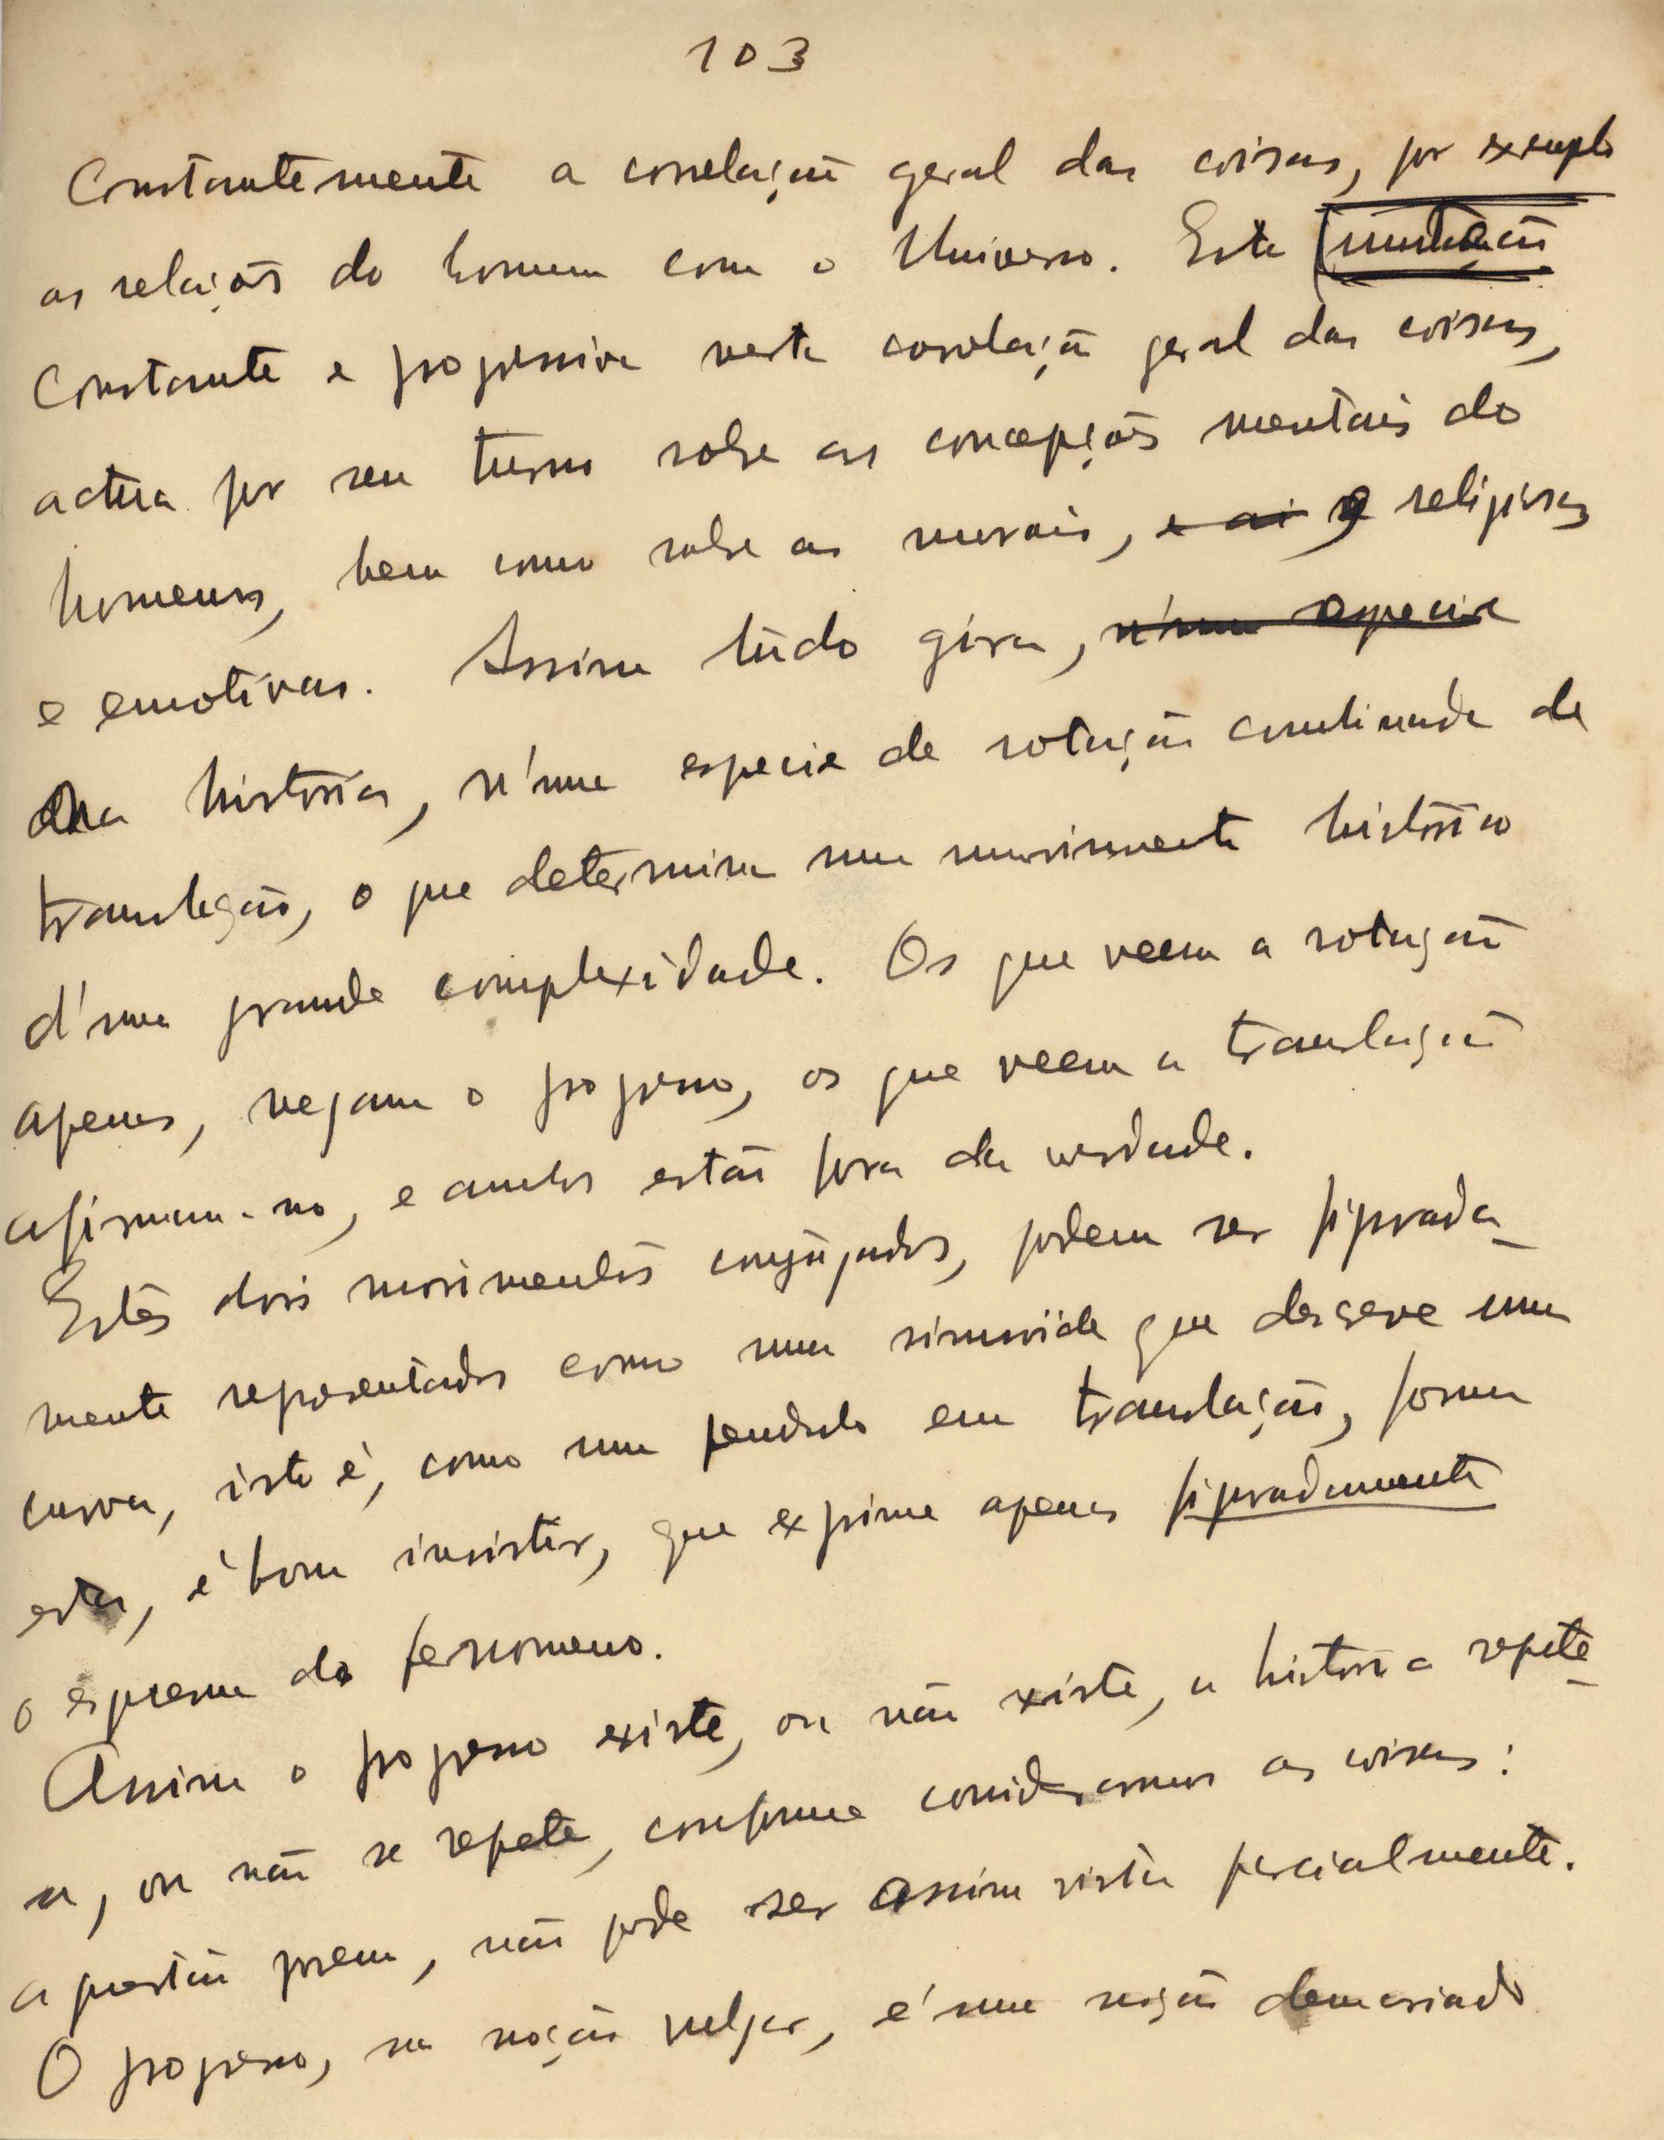 103
Constantemente a correlação geral das coisas, por exemplo
as relações do homem com o Universo. Esta mutação
Constante e progressiva nesta correlação geral das coisas,
actua por seu turno sobre as concepções mentais do
homens, bem como sobre as morais, e as religiosas
e emotivas. Assim tudo gira, n'uma especie
na história, n'uma especie de rotação combinada de
translação, o que determina um movimento histórico
d'uma grande complexidade. Os que veem a rotação
apenas, negam o progresso, os que veem a translação
afirmam-no, e ambos estão fora da verdade.
Estes dois movimentos conjugados, podem ser figurada-
mente representados como uma sinusoide que descreve uma
curva, isto é, como um pendulo em translação, forma
esta, é bom insistir, que exprime apenas figuradamente
o esquema do fenomeno.
Assim o progresso existe, ou não existe, a historia repete-
se, ou não se repete, conforme consideramos as coisas:
a questão porem, não pode ser assim vista parcialmente.
O progresso, na noção vulgar, é uma noção demasiado